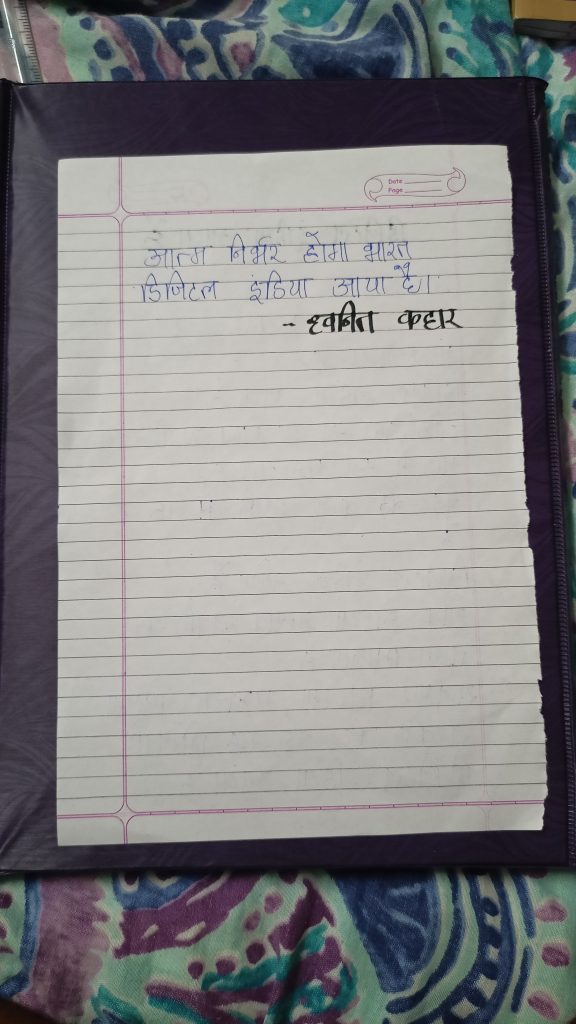 Date
Page
आत्म निर्भर होगा भारत
डिजिटल इंडिया आया है।
- ध्वनित कहार